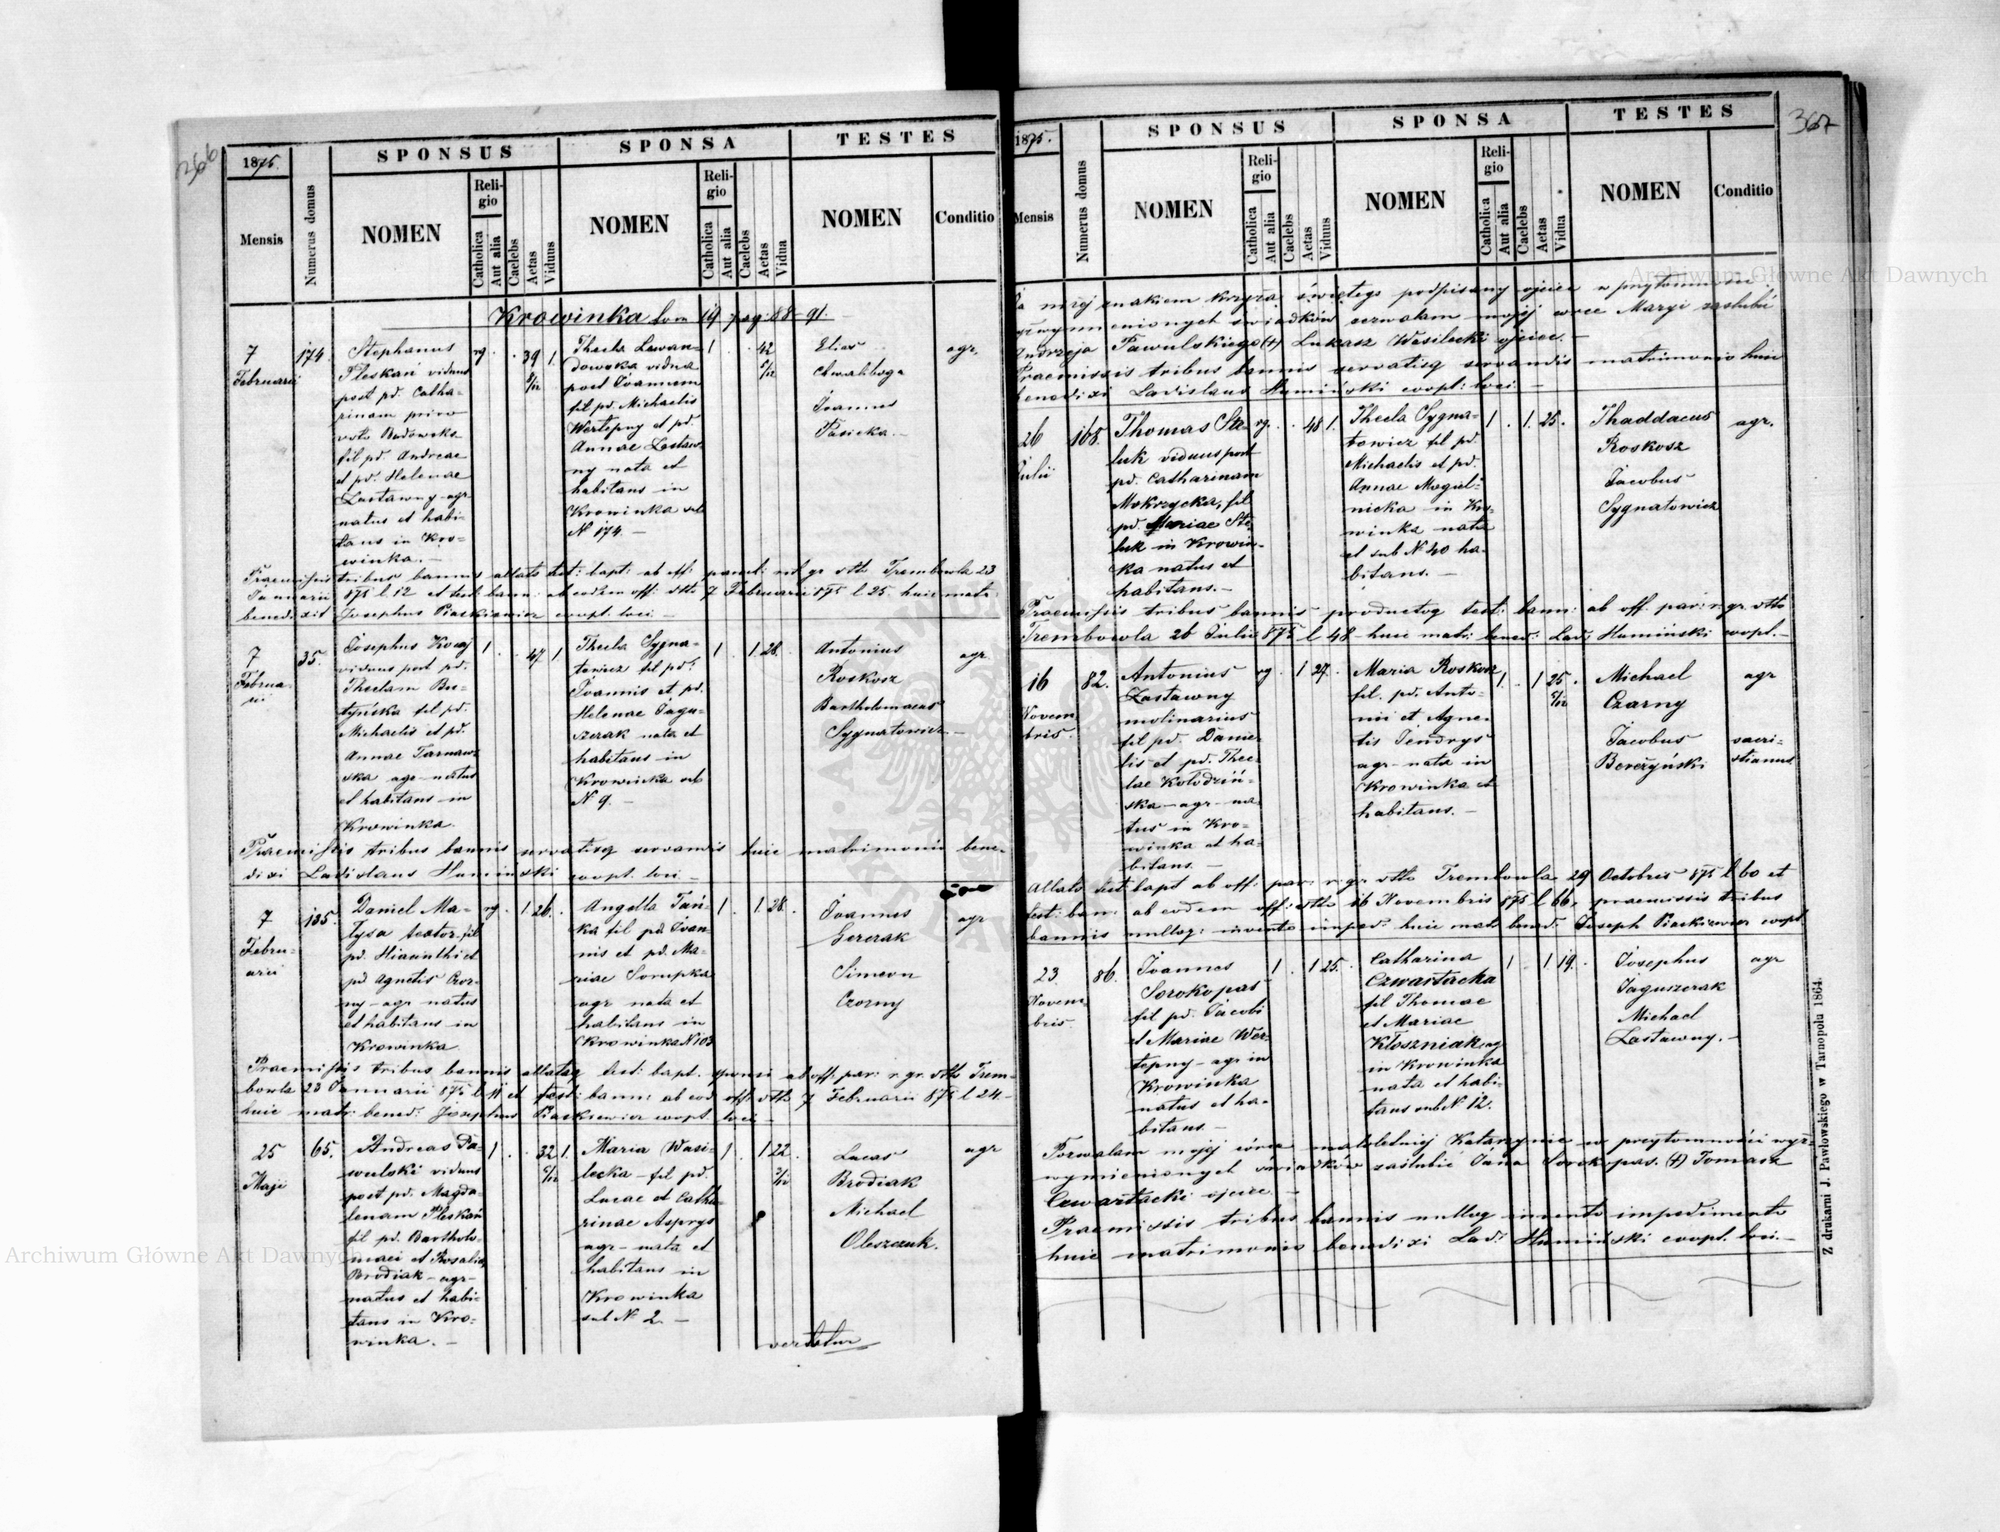 266
1875.
SPONSUS
SPONSA
TESTES
Mensis
Numerus domus
NOMEN
Religio
Catholica
Aut alia
Caelebs
Aetas
Viduus
NOMEN
Religio
Catholica
Aut alia
Caelebs
Aetas
Vidua
NOMEN
Conditio
Krowinka tom 19 pag: 88-91.
7
Februarii
174.
Stephanus
Pleskan viduus
post pd. Catha-
rinam primo
voto Badowska
fil pd. Andreae
et pd. Helenae
Łastawny agr
natus et habi-
tans in Kro-
winka. -
rg
39 1.
Thecla Lewan-
dowska vidua
post Joannem
fil pd. Michaelis
Wertepny et pd.
Annae Łastaw-
ny nata et
habitans in
Krowinka sub
N 174. -
1
42
Elias
Chwaliboga
Joannes
Pasieka. -
agr.
Praemissis tribus bannis allato test: bapt: ab off: paroch: rit gr dtto Trembowla 23
Januarii 875 l. 12 et test: bann: ab eodem off: dtto 7 Februarii 875 l 25 huic matr:
benedixit Josephus Piaskiewicz coopt. loci. -
7
Februa-
rii
35.
Josephus
viduus post pd.
Theclam Bu-
tyńska fil pd.
Michaelis et pd.
Annae Tarnaw-
ska agr-natus
et habitans in
Krowinka.
1
47 1
Thecla Sygna-
towicz fil pd.
Joannis et pd.
Helenae Jagu-
szerak nata et
habitans in
Krowinka sub
N 9. -
1
1 28.
Antonius
Roskosz
Bartholomaeus
Sygnatowicz -
agr
Praemissis tribus bannis servatisq servandis huic matrimonio bene-
dixi Ladislaus Humiński coopt. loci -
7
Febru-
arii
135.
Daniel Ma-
tysa textor fil
pd. Hiacinthi et
pd Agnetis Czor-
ny-agr natus
et habitans in
Krowinka
rg
1 26.
Angella Tań-
ka fil pd Joan-
nis et pd. Ma-
riae Sorupka
agr nata et
habitans in
Krowinka N 103
1
1 28.
Joannes
Gererak
Simeon
Czorny
agr
Praemissis tribus bannis allatoq test: bapt. sponsi ab off: par: r. gr. dtto Trem-
bowla 23 Januarii 875 l 11 et test: bann: ab eod off: dtto 7 Februarii 875 l 24. -
huic matr: bened: Josephus Piaskiewicz coopt. loci -
25
Maji
65.
Andreas Pa-
wulski viduus
post pd. Magda-
lenam Pleskań
fil pd. Bartholo-
maei et Rosaliae
Brodiak-agr-
natus et habi-
tans in Kro-
winka. -
1
32 1.
Maria Wasi-
lecka-fil pd.
Lucae et Catha-
rinae Asprys
agr-nata et
habitans in
Krowinka
sub N. 2. -
1
1 22
Lucas
Brodiak
Michael
Oleszczuk.
agr
vertatur
367
1875.
SPONSUS
SPONSA
TESTES
Mensis
Numerus domus
NOMEN
Religio
Catholica
Aut alia
Caelebs
Aetas
Viduus
NOMEN
Religio
Catholica
Aut alia
Caelebs
Aetas
Vidua
NOMEN
Conditio
Ja niżej znakiem krzyża świętego podpisany ojciec w przytomności
wyżwymienionych świadków zezwalam mojej córce Maryi zaślubić
Andrzeja Pawulskiego (+) Łukasz Wasilecki ojciec. -
Praemissis tribus bannis servatisq servandis matrimonio huic
benedixi Ladislaus Humiński coopt: loci. -
26
Julii
165.
Thomas Ste-
luk viduus post
pd. Catharinam
Mokrzycka, fil
pd. Mariae Ste-
luk in Krowin-
ka natus et
habitans. -
rg
48 1.
Thecla Sygna-
towicz fil pd.
Michaelis et pd.
Annae Mogul-
nicka in Kro-
winka nata
et sub N 40 ha-
bitans. -
1
1. 25.
Thaddaeus
Roskosz
Jacobus
Sygnatowicz
agr.
Praemissis tribus bannis productoq test: bann: ab off: par: r. gr. dtto
Trembowla 26 Julii 875 l 48 huic matr: bened: Ladi: Humiński coopt. -
16
Novem-
bris.
82.
Antonius
Łastawny
molinarius
fil pd. Danie-
lis et pd. Thec-
lae Kołodziń-
ska-agr-na-
tus in Kro-
winka et ha-
bitans. -
rg
1 27.
Maria Roskosz
fil. pd. Anto-
nii et Agne-
tis Jendrys
agr-nata in
Krowinka et
habitans. -
1.
1 25
Michael
Czarny
Jacobus
Bereżyński
agr
sacri-
stianus
Allato test: bapt ab off: par: r. gr. dtto Trembowla 29 Octobris 875 l 60 et
test: ban: ab eodem off: dtto 16 Novembris 875 l 66, praemissis tribus
bannis nulloq: invento imped: huic matr bened: Joseph Piaskiewicz coopt
23
Novem-
bris
86.
Joannes
Sorokopas
fil pd. Jacobi
et Mariae Wer-
tepny-agr in
Krowinka
natus et ha-
bitans. -
1
1 25.
Catharina
Czwartacka
fil Thomae
et Mariae
Kłoszniak agr
in Krowinka
nata et habi-
tans sub N 12.
1
1 19.
Josephus
Jaguszerak
Michael
Łastawny. -
agr
Pozwalam mojej córce małoletniej Katarzynie w przytomności wyż-
wymienionych świadków zaślubić Jana Sorokopas. (+) Tomasz
Czwartacki ojciec. -
Praemissis tribus bannis nulloq invento impedimento
huic matrimonio benedixi Lad: Humiński coopt. loci. -
Z drukarni J. Pawłowskiego w Tarnopolu 1864.
Archiwum Główne Akt Dawnych
Archiwum Główne Akt Dawnych